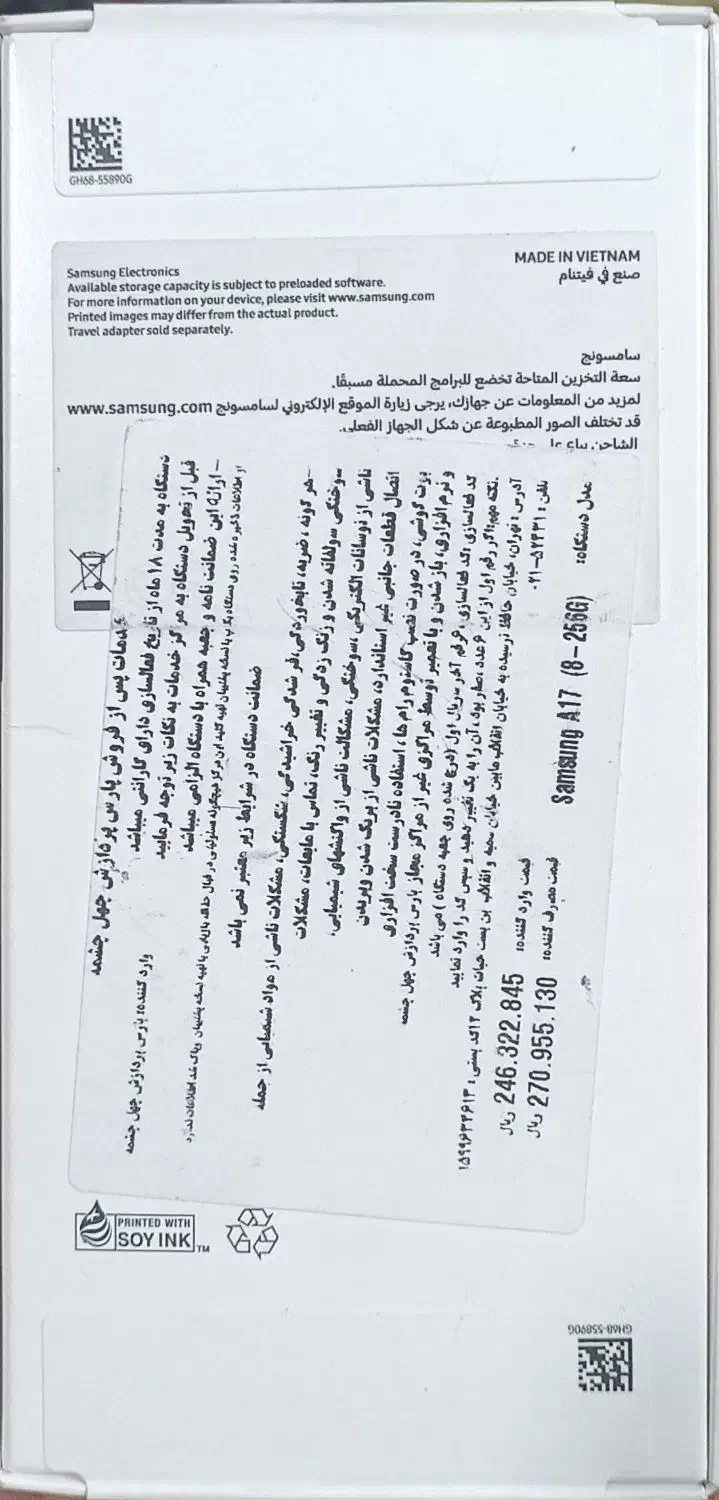 GH68-55890G
MADE IN VIETNAM
صنع في فيتنام
Samsung Electronics
Available storage capacity is subject to preloaded software.
For more information on your device, please visit www.samsung.com
Printed images may differ from the actual product.
Travel adapter sold separately.
سامسونج
سعة التخزين المتاحة تخضع للبرامج المحملة مسبقًا.
لمزيد من المعلومات عن جهازك، يرجى زيارة الموقع الإلكتروني لسامسونج www.samsung.com
قد تختلف الصور المطبوعة عن شكل الجهاز الفعلي.
الشاحن يباع
خدمات پس از فروش پارس پردازش چهل چشمه
وارد کننده: پارس پردازش چهل چشمه
دستگاه به مدت ۱۸ ماه از تاریخ فعالسازی دارای گارانتی میباشد
قبل از تحویل دستگاه به مرکز خدمات به نکات زیر توجه فرمایید
- ارائه این ضمانت نامه و جعبه همراه با دستگاه الزامی میباشد
ضمانت دستگاه در شرایط زیر معتبر نمی باشد
-هر گونه ، ضربه، تابخوردگی، فر شدگی خراشیدگی، شکستگی، مشکلات ناشی از مواد شیمیایی از جمله
سوختگی سولفاته شدن و زنگ زدگی و تغییر رنگ، تماس با مایعات، مشکلات
ناشی از نوسانات الکتریکی ،سوختگی، مشکلات ناشی از واکنشهای شیمیایی،
اتصال قطعات جانبی غیر استاندارد، مشکلات ناشی از بریک شدن و پریدن
بوت گوشی، در صورت نصب کاستوم رام ها ، استفاده نادرست سخت افزاری
و نرم افزاری، باز شدن و یا تعمیر توسط مراکزی غیر از مراکز مجاز پارس پردازش چهل چشمه
کد فعالسازی :کد فعالسازی ۶ رقم آخر سریال اول (درج شده روی جعبه دستگاه ) می باشد
نکته مهم:اگر رقم اول از این ۶ عدد ،صفر بود، آن را به یک تغییر دهید و سپس کد را وارد نمایید
آدرس : تهران، خیابان حافظ نرسیده به خیابان انقلاب مابین خیابان سمیه و انقلاب بن بست حیات پلاک ۱۲ کد پستی : ۱۵۹۹۶۳۴۶۱۳
تلفن : ۵۷۴۳۱-۰۲۱
قیمت وارد کننده: 246.322.845 ریال
قیمت مصرف کننده: 270.955.130 ریال
مدل دستگاه: Samsung A17 (8-256G)
PRINTED WITH
SOY INK TM
GH68-55890G